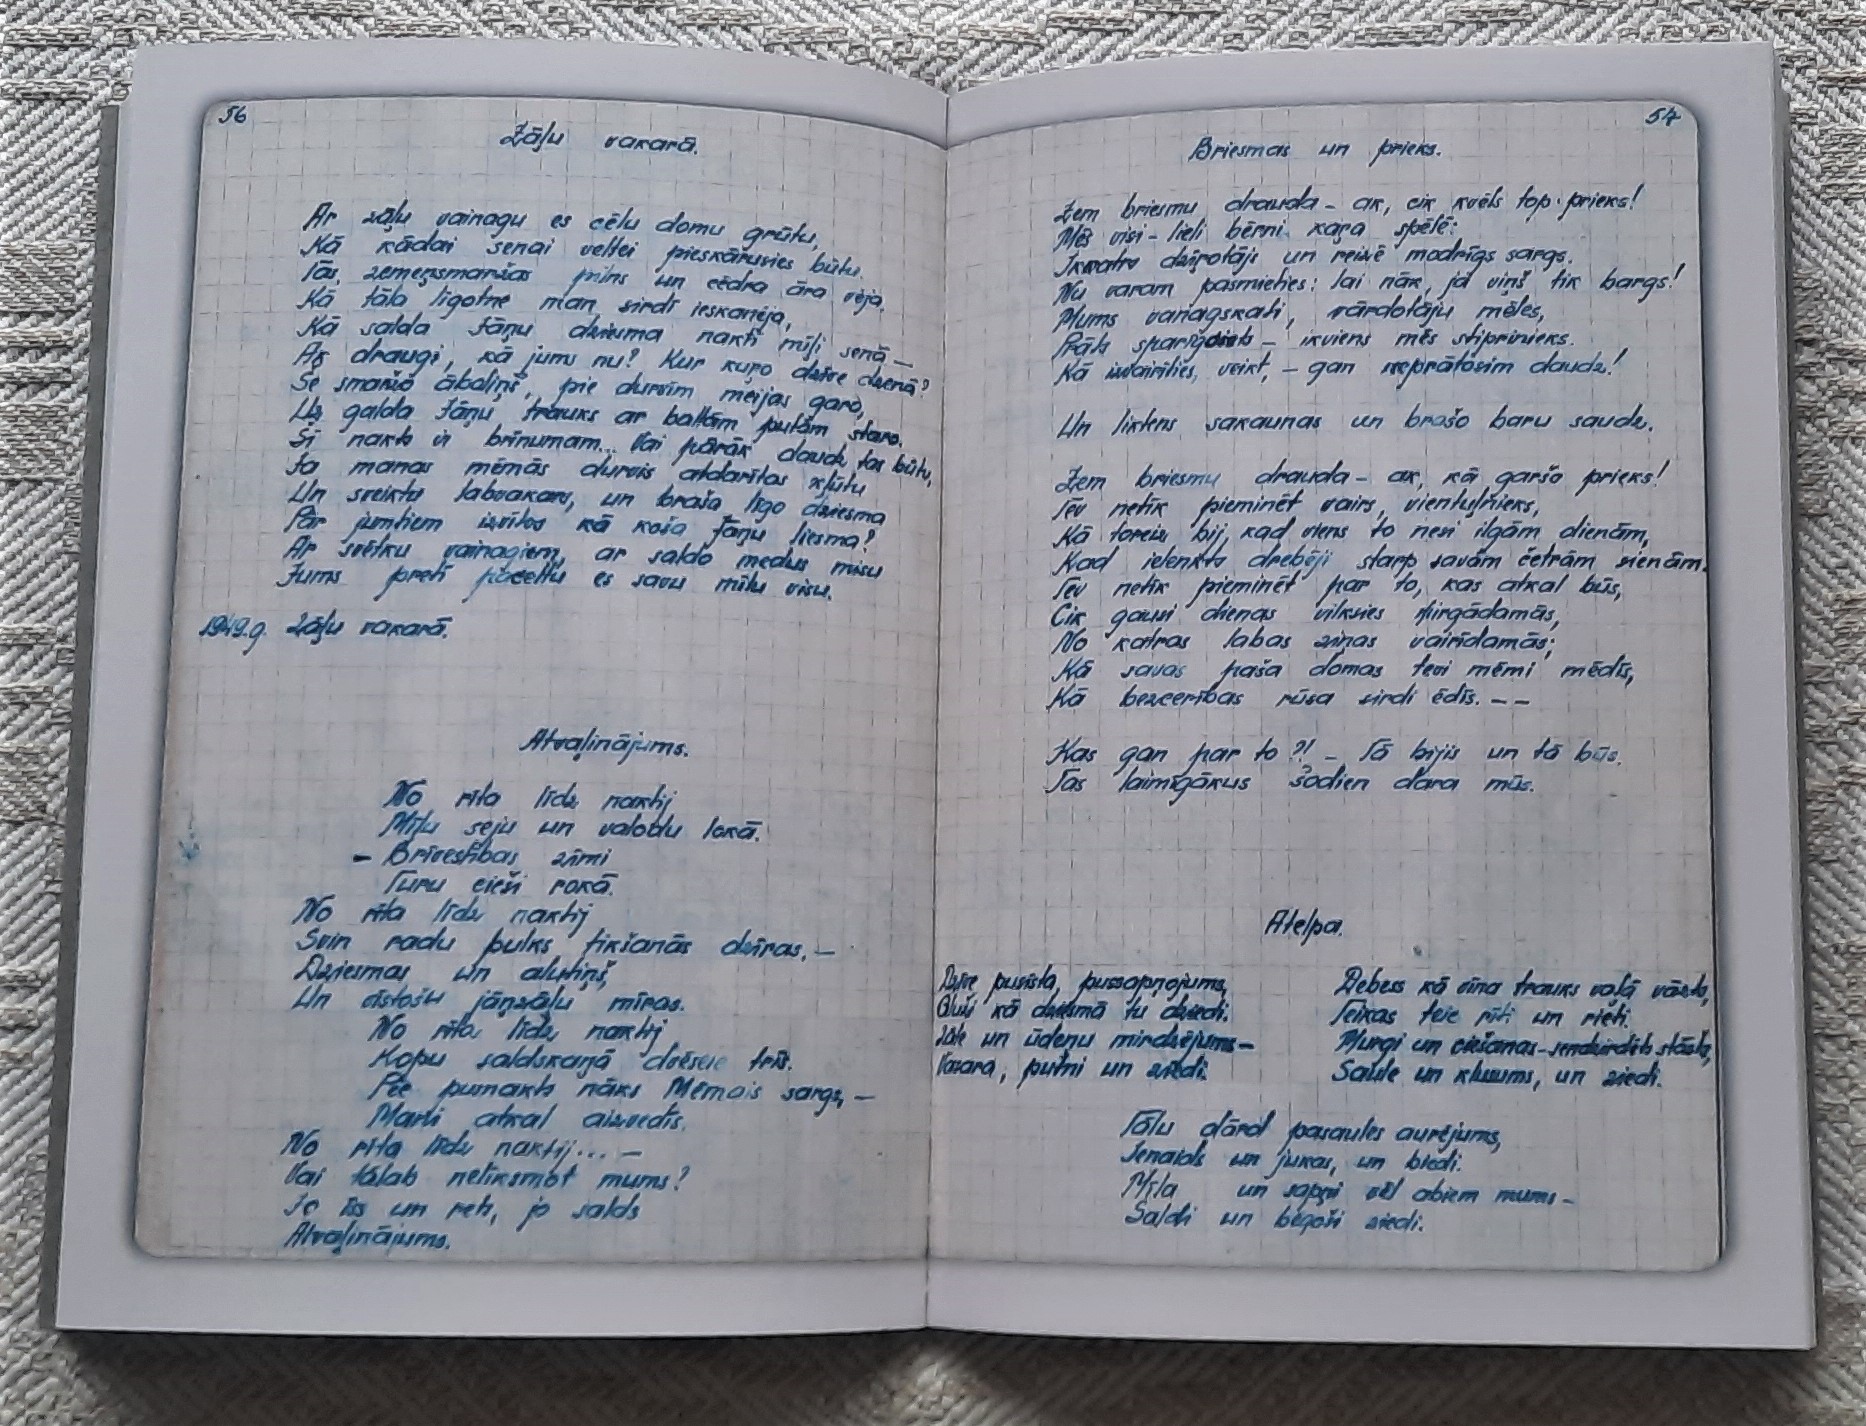 56
Zāļu vakarā.
Ar zāļu vainagu es cēlu domu grūtu,
Kā kādai senai veltei pieskāries būtu.
Tās, zemeņsmaržas pilns un cēdra āra vēja,
Kā tāla līgotne man sirdī ieskanēja,
Kā salda Jāņu dziesma naktī mīļi senā —
Ak draugi, kā jums nu? Kur kuŗo dzīve dzenā?
Še smaržo āboliņš, pie durvīm meijas garo,
Uz galda Jāņu trauks ar baltām putām staro.
Šī nakts ir brīnumam... Vai pārāk daudz tas būtu,
Ja manas mēmās durvis atdarītas kļūtu
Un sveikts labvakars, un braša līgo dziesma
Pār jumtiem izvītos kā koša Jāņu liesma?
Ar svētku vainagiem, ar saldo medus misu
Jums pretī paceltu es savu mīlu visu.
1949.g. Zāļu vakarā.
Atvaļinājums.
No rīta līdz naktij
Mīļu seju un valodu lokā.
– Brīvestības zīmi
Turu cieši rokā.
No rīta līdz naktij
Svin radu pulks tikšanās dzīras, —
Dziesmas un alutiņš,
Un dīstošu jāņzāļu mīras.
No rīta līdz naktij
Kopu saldskaņā dvēsele trīs.
Pēc pusnakts nāks Mēmais sargs, —
Mani atkal aizvedīs.
No rīta līdz naktij... —
Vai tālab nelīksmot mums?
Jo īss un rets, jo salds
Atvaļinājums.
57
Briesmas un prieks.
Zem briesmu drauda – ak, cik kvēls top prieks!
Mēs visi – lieli bērni kaŗa spēlē:
Ikkatrs dzīrotājs un reizē modrīgs sargs.
Nu varam pasmieties: lai nāk, ja viņš tik bargs!
Mums vanagskati, vārdotāju mēles,
Prāts – ikviens mēs stiprinieks.
Kā izvairīties, veikt, – gan neprātosim daudz!
Un liktens sakaunas un brašo baru saudz.
Zem briesmu drauda – ak, kā garšo prieks!
Tev netīk pieminēt vairs, vientuļnieks,
Kā toreiz bij, kad viens to nesi ilgām dienām,
Kad ielenkts drebēji starp savām četrām sienām.
Tev netīk pieminēt par to, kas atkal būs,
Cik gausi dienas vilksies ņirgādamās,
No katras labas ziņas vairīdamās;
Kā savas paša domas tevi mēmi mēdīs,
Kā bezcerības rūsa sirdi ēdīs. – –
Kas gan par to?! – Tā bijis un tā būs.
Tas laimīgākus šodien dara mūs.
Atelpa.
Dzīve pusīsta, pussapņojums,
Gluži kā dziesmā tu dziedi.
Zāle un ūdeņu mirdzējums –
Vasara, putni un ziedi.
Debess kā vīna trauks vaļā vāzts,
Teikas teic rīti un rieti.
Murgi un ciešanas – sendzirdēts stāsts,
Saule un klusums, un ziedi.
Tālu dārd pasaules aurējums,
Ienaids un jukas, un biedi.
Mīla un sapņi vēl abiem mums –
Saldi un bēgoši ziedi.